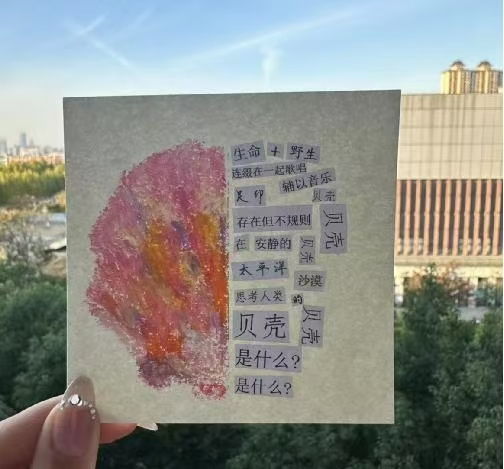 生命 + 野生
连缀在一起歌唱
辅以音乐
足印 贝壳
存在但不规则 贝壳
在 安静的 贝壳
太平洋 沙漠
思考人类 的 贝壳
贝壳
是什么?
是什么?